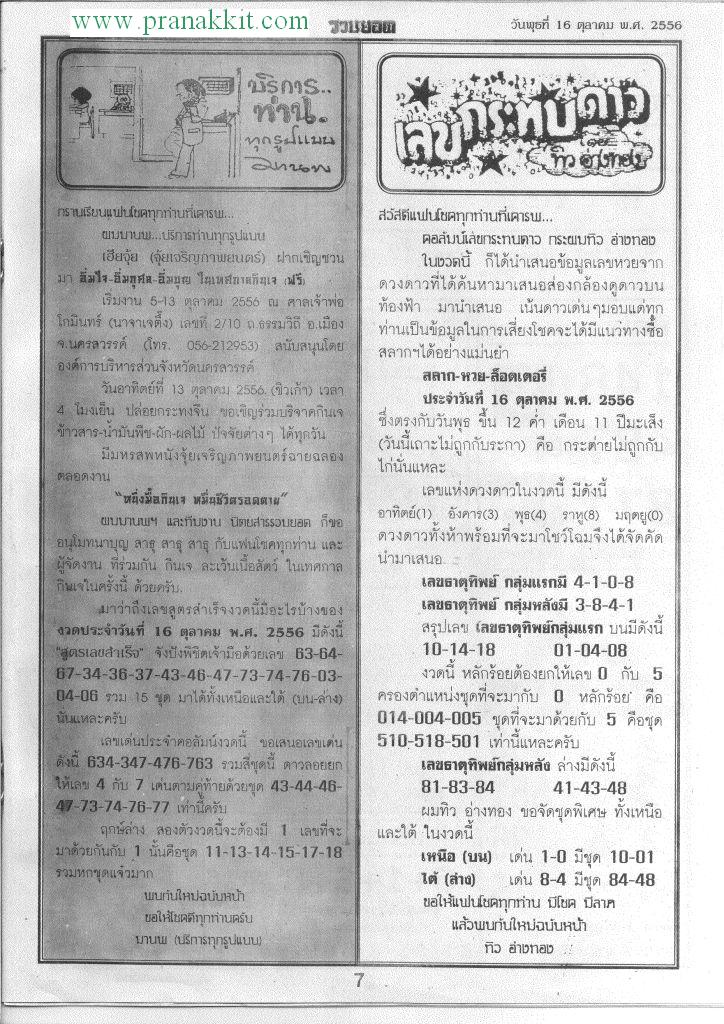 www.pranakkit.com
รวมยอด
วันพุธที่ 16 ตุลาคม พ.ศ. 2556
บริการ..
ท่าน.
ทุกรูปแบบ
มานพ
กราบเรียนแฟนโชคทุกท่านที่เคารพ...
ผมมานพ...บริการท่านทุกรูปแบบ
เฮียจุ้ย (จุ้ยเจริญภาพยนตร์) ฝากเชิญชวน
มา อิ่มใจ-อิ่มกุศล-อิ่มบุญ ในเทศกาลกินเจ (ฟรี)
เริ่มงาน 5-13 ตุลาคม 2556 ณ ศาลเจ้าพ่อ
โกมินทร์ (นาจาเจตึ้ง) เลขที่ 2/10 ถ.ธรรมวิถี อ.เมือง
จ.นครสวรรค์ (โทร. 056-212953) สนับสนุนโดย
องค์การบริหารส่วนจังหวัดนครสวรรค์
วันอาทิตย์ที่ 13 ตุลาคม 2556 (ชิวเก้า) เวลา
4 โมงเย็น ปล่อยกระทงจีน ขอเชิญร่วมบริจาคกินเจ
ข้าวสาร-น้ำมันพืช-ผัก-ผลไม้ ปัจจัยต่างๆ ได้ทุกวัน
มีมหรสพหนังจุ้ยเจริญภาพยนตร์ฉายฉลอง
ตลอดงาน
"หนึ่งมื้อกินเจ หมื่นชีวิตรอดตาย"
ผมมานพฯ และทีมงาน นิตยสารรวมยอด ก็ขอ
อนุโมทนาบุญ สาธุ สาธุ สาธุ กับแฟนโชคทุกท่าน และ
ผู้จัดงาน ที่ร่วมกัน กินเจ ละเว้นเนื้อสัตว์ ในเทศกาล
กินเจในครั้งนี้ ด้วยครับ
มาว่าถึงเลขสูตรสำเร็จงวดนี้มีอะไรบ้างของ
งวดประจำวันที่ 16 ตุลาคม พ.ศ. 2556 มีดังนี้
"สูตรเลขสำเร็จ" จังปังพิชิตเจ้ามือด้วยเลข 63-64-
67-34-36-37-43-46-47-73-74-76-03-
04-06 รวม 15 ชุด มาได้ทั้งเหนือและใต้ (บน-ล่าง)
นั่นแหละครับ
เลขเด่นประจำคอลัมน์งวดนี้ ขอเสนอเลขเด่น
ดังนี้ 634-347-476-763 รวมสี่ชุดนี้ ดาวลอยยก
ให้เลข 4 กับ 7 เด่นตามคู่ท้ายด้วยชุด 43-44-46-
47-73-74-76-77 เท่านี้ครับ
ฤกษ์ล่าง สองตัวงวดนี้จะต้องมี 1 เลขที่จะ
มาด้วยกันกับ 1 นั้นคือชุด 11-13-14-15-17-18
รวมหกชุดแจ๋วมาก
พบกันใหม่ฉบับหน้า
ขอให้โชคดีทุกท่านครับ
มานพ (บริการทุกรูปแบบ)
เลขกระทบดาว
โดย
ทิว อ่างทอง
สวัสดีแฟนโชคทุกท่านที่เคารพ...
คอลัมน์เลขกระทบดาว กระผมทิว อ่างทอง
ในงวดนี้ ก็ได้นำเสนอข้อมูลเลขหวยจาก
ดวงดาวที่ได้ค้นหามาเสนอส่องกล้องดูดาวบน
ท้องฟ้า มานำเสนอ เน้นดาวเด่นๆมอบแด่ทุก
ท่านเป็นข้อมูลในการเสี่ยงโชคจะได้มีแนวทางซื้อ
สลากฯได้อย่างแม่นยำ
สลาก-หวย-ล็อตเตอรี่
ประจำวันที่ 16 ตุลาคม พ.ศ. 2556
ซึ่งตรงกับวันพุธ ขึ้น 12 ค่ำ เดือน 11 ปีมะเส็ง
(วันนี้เถาะไม่ถูกกับระกา) คือ กระต่ายไม่ถูกกับ
ไก่นั่นแหละ
เลขแห่งดวงดาวในงวดนี้ มีดังนี้
อาทิตย์(1) อังคาร(3) พุธ(4) ราหู(8) มฤตยู(0)
ดวงดาวทั้งห้าพร้อมที่จะมาโชว์โฉมจึงได้จัดคัด
นำมาเสนอ
เลขธาตุทิพย์ กลุ่มแรกมี 4-1-0-8
เลขธาตุทิพย์ กลุ่มหลังมี 3-8-4-1
สรุปเลข เลขธาตุทิพย์กลุ่มแรก บนมีดังนี้
10-14-18 01-04-08
งวดนี้ หลักร้อยต้องยกให้เลข 0 กับ 5
ครองตำแหน่งชุดที่จะมากับ 0 หลักร้อย คือ
014-004-005 ชุดที่จะมาด้วยกับ 5 คือชุด
510-518-501 เท่านี้แหละครับ
เลขธาตุทิพย์กลุ่มหลัง ล่างมีดังนี้
81-83-84 41-43-48
ผมทิว อ่างทอง ขอจัดชุดพิเศษ ทั้งเหนือ
และใต้ ในงวดนี้
เหนือ (บน) เด่น 1-0 มีชุด 10-01
ใต้ (ล่าง) เด่น 8-4 มีชุด 84-48
ขอให้แฟนโชคทุกท่าน มีโชค มีลาภ
แล้วพบกันใหม่ฉบับหน้า
ทิว อ่างทอง
7